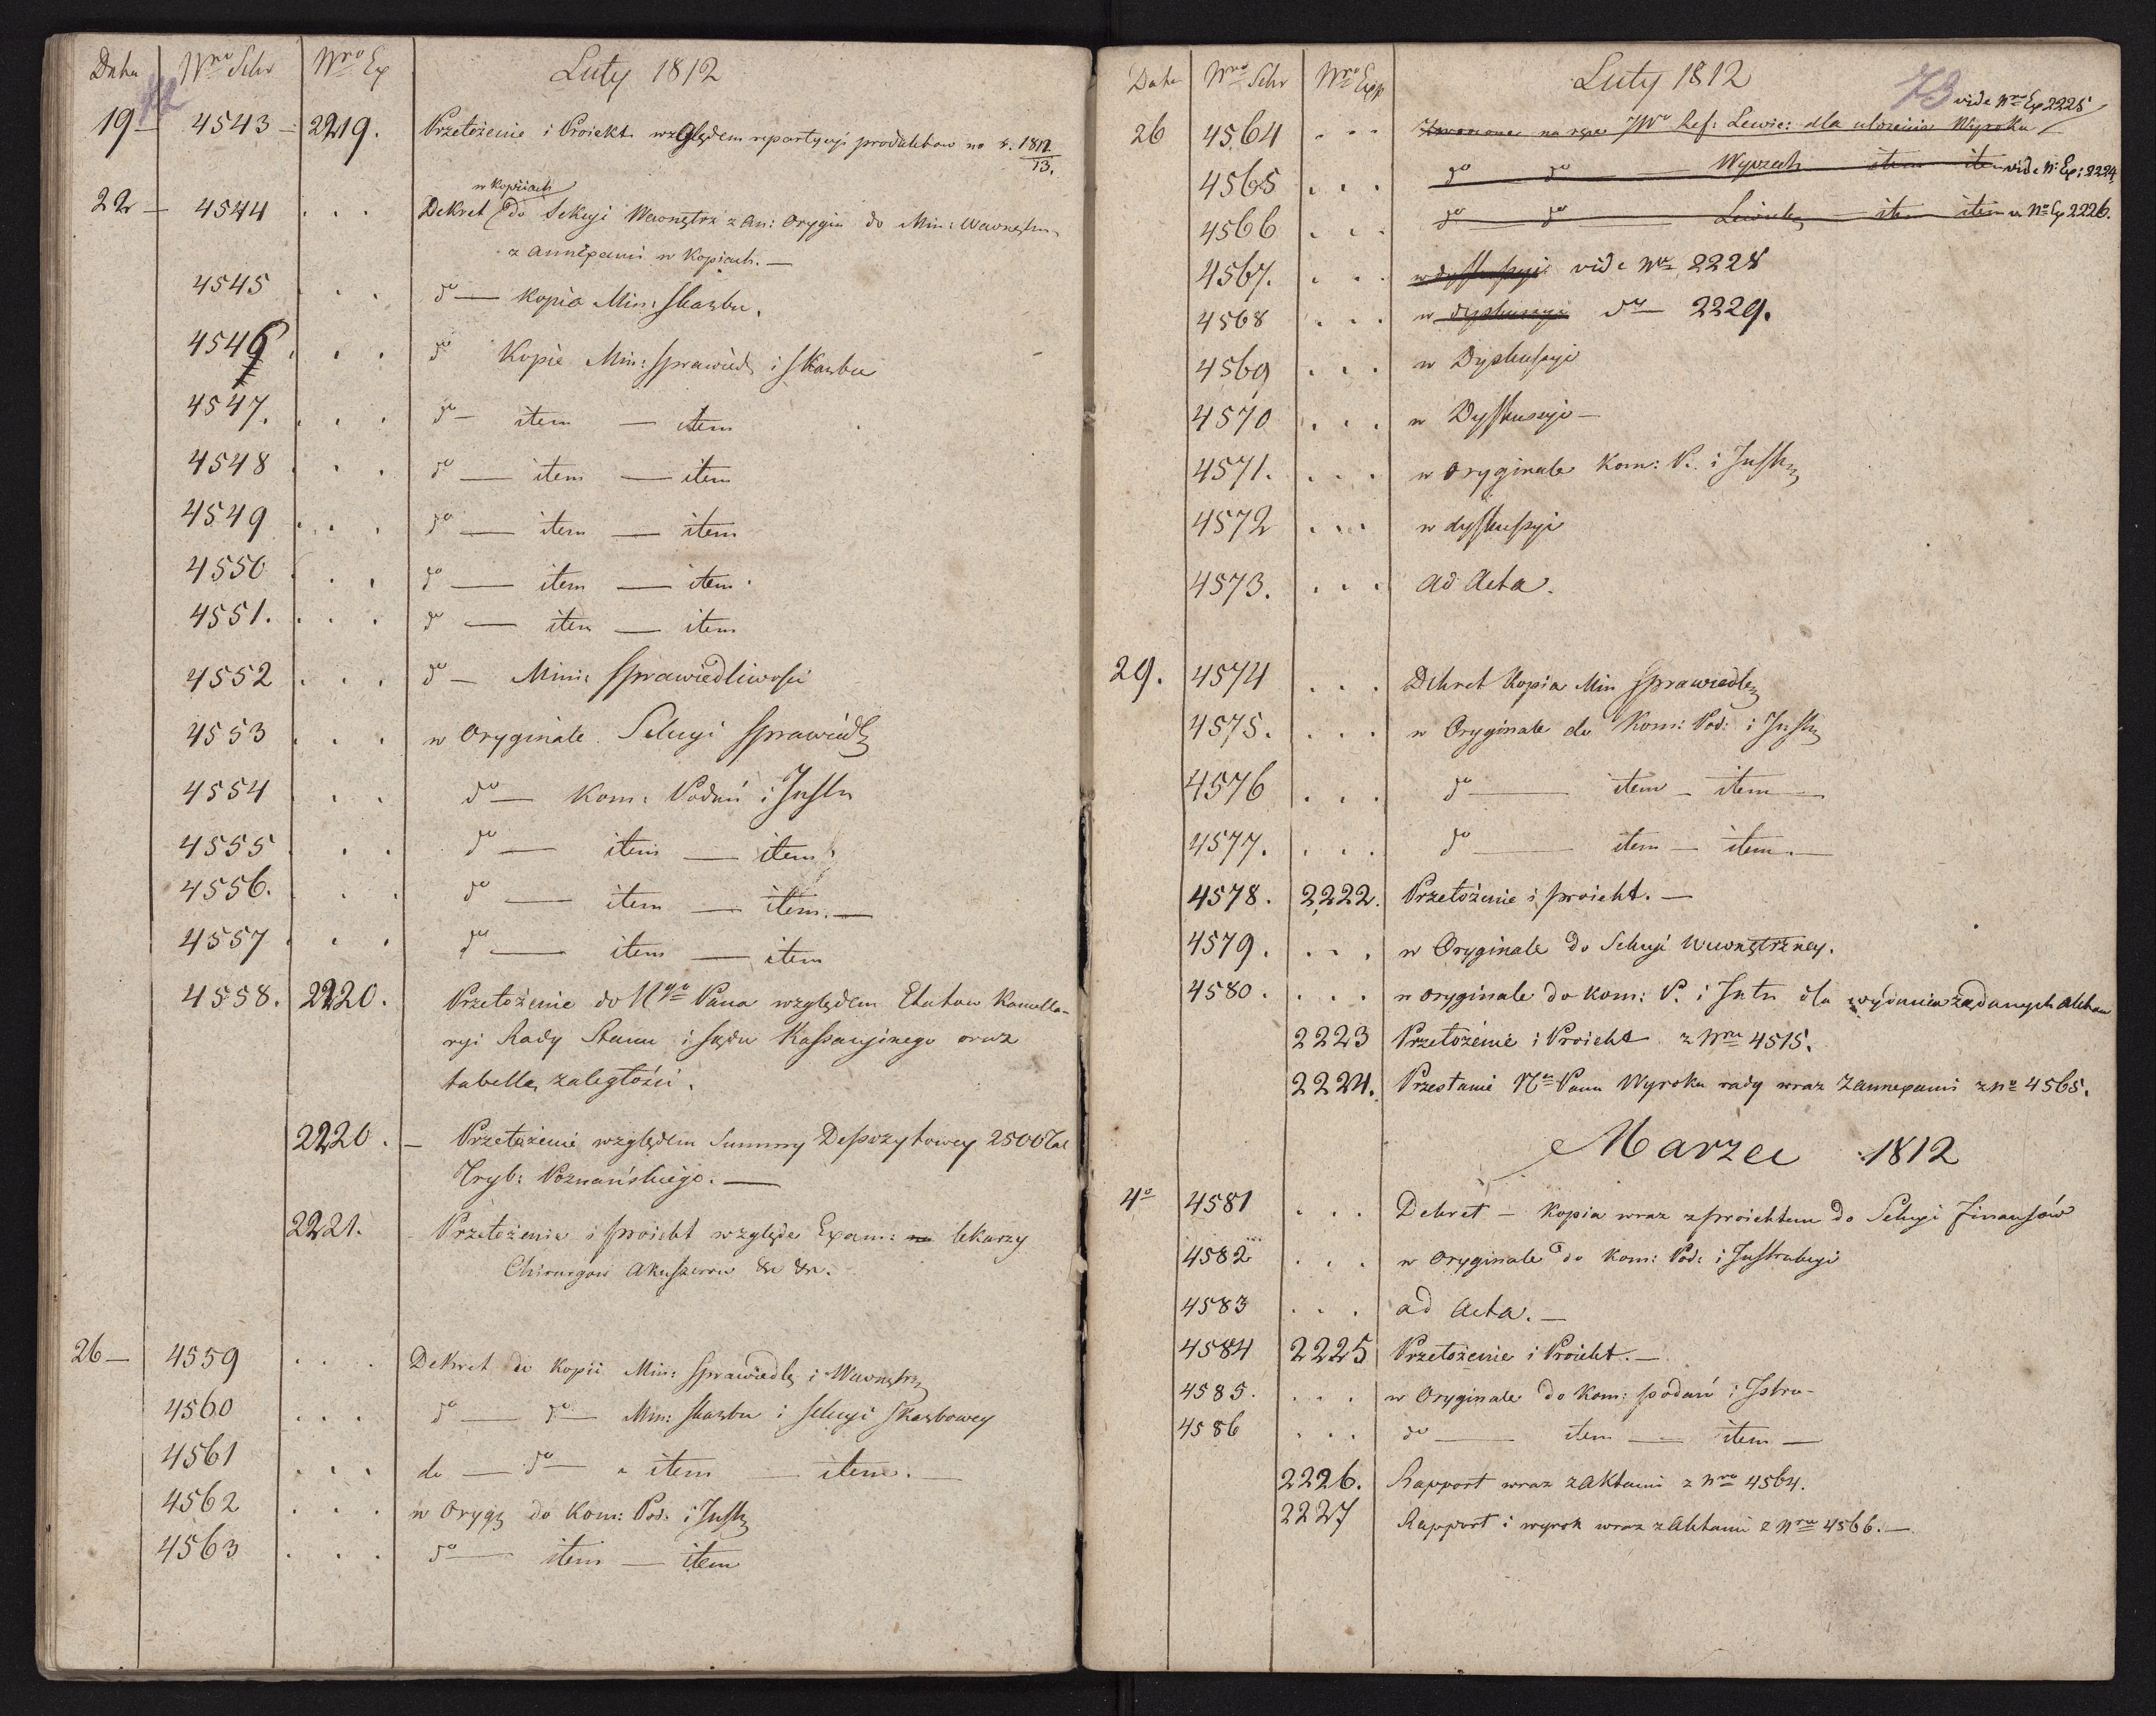 Data Nro Sekr Nro Ex Luty 1812
72
19 – 4543 – 2219. Przełożenie i Proiekt względem repartycyi produktow na r. 1812/13.
w kopiiach
22 – 4544 . . . Dekret do Sekcyi Wewnętrz z an: orygin do Min: Wewnętrz
z annexami w Kopiach. —
4545 . . . do — kopia Min: Skarbu.
4546 . . . do Kopie Min: Sprawied i Skarbu
4547. . . . do — item — item
4548 . . . do — item — item
4549 . . . do — item — item
4550 . . . do — item — item.
4551. . . . do — item — item
4552 . . . do — Mini: Sprawiedliwości
4553 . . . w Oryginale Sekcyi Sprawied
4554 . . . do — Kom: Podań i Instr
4555 . . . do — item — item.
4556. . . . do — item — item. —
4557 . . . do — item — item
4558. 2220. Przełożenie do Ngo Pana względem Etatow Kancella-
ryi Rady Stanu i Sądu Kassacyinego oraz
tabella zaległości.
2220. – Przełożenie względem Summy Depozytowey 2500 Tal
Tryb: Poznańskiego. —
2221. Przełożenie i proiekt względe Exam: lekarzy
Chirurgow Akuszerow &c &c.
26 – 4559 . . . Dekret do kopii Min: Sprawiedl i Wewnętrz
4560 . . . do — do — Min: Skarbu i Sekcyi Skarbowey
4561 . . . do — do — item — item. —
4562 . . . w Oryg do Kom: Pod: i Instr
4563 . . . do — item — item
Data Nro Sekr Nro Exp Luty 1812
73 vide Nro Ex 2225
26 4564 . . . na ręce JWo Ref: Lewic: dla ułożenia Wyroku
4565 . . . do do — Wyrzech item item vide No Ex: 2224
4566 . . . do — do — item item v. No Ex 2226.
4567. . . . w dyskussyi vide Nro 2228
4568 . . . w dyskussyi do — 2229.
4569 . . . w Dyskussyi
4570 . . . w Dyskussyi —
4571. . . . w Oryginale Kom: P. i Instr
4572 . . . w dyskussyi
4573. . . . Ad Acta.
29. 4574 . . . Dekret Kopia Min Sprawiedl
4575. . . . w Oryginale do Kom: Pod: i Instr
4576 . . . do — item — item —
4577. . . . do — item — item. —
4578. 2222. Przełożenie i proiekt. —
4579. . . . w Oryginale do Sekcyi Wewnętrzney.
4580. . . . w oryginale do kom: P. i Intr dla wydania żądanych aktow
2223 Przełożenie i Proiekt z Nru 4515.
2224. Przesłanie Panu Wyroku rady wraz z annexami z No 4565.
Marzec 1812
4o 4581 . . . Dekret – Kopia wraz z proiektem do Sekcyi Finansów
4582 . . . w Oryginale do Kom: Pod: i Instrukcyi
4583 . . . ad Acta. —
4584 2225 Przełożenie i Proiekt. —
4585. . . . w Oryginale do Kom: podań i Istru-
4586 . . . do — item — item —
2226. Rapport wraz z Aktami z Nro 4564.
2227 Rapport i wyrok wraz z Aktami z Nru 4566. —